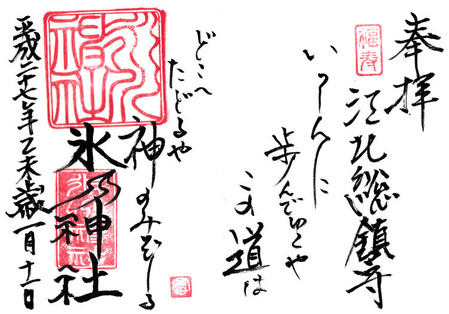 奉拝
福寿
江北總鎮守
いつしんに
歩んでゆこや
この道は
どこへ
たどるや
神のみぞしる
氷川神社
平成二十七年乙未歳一月十一日